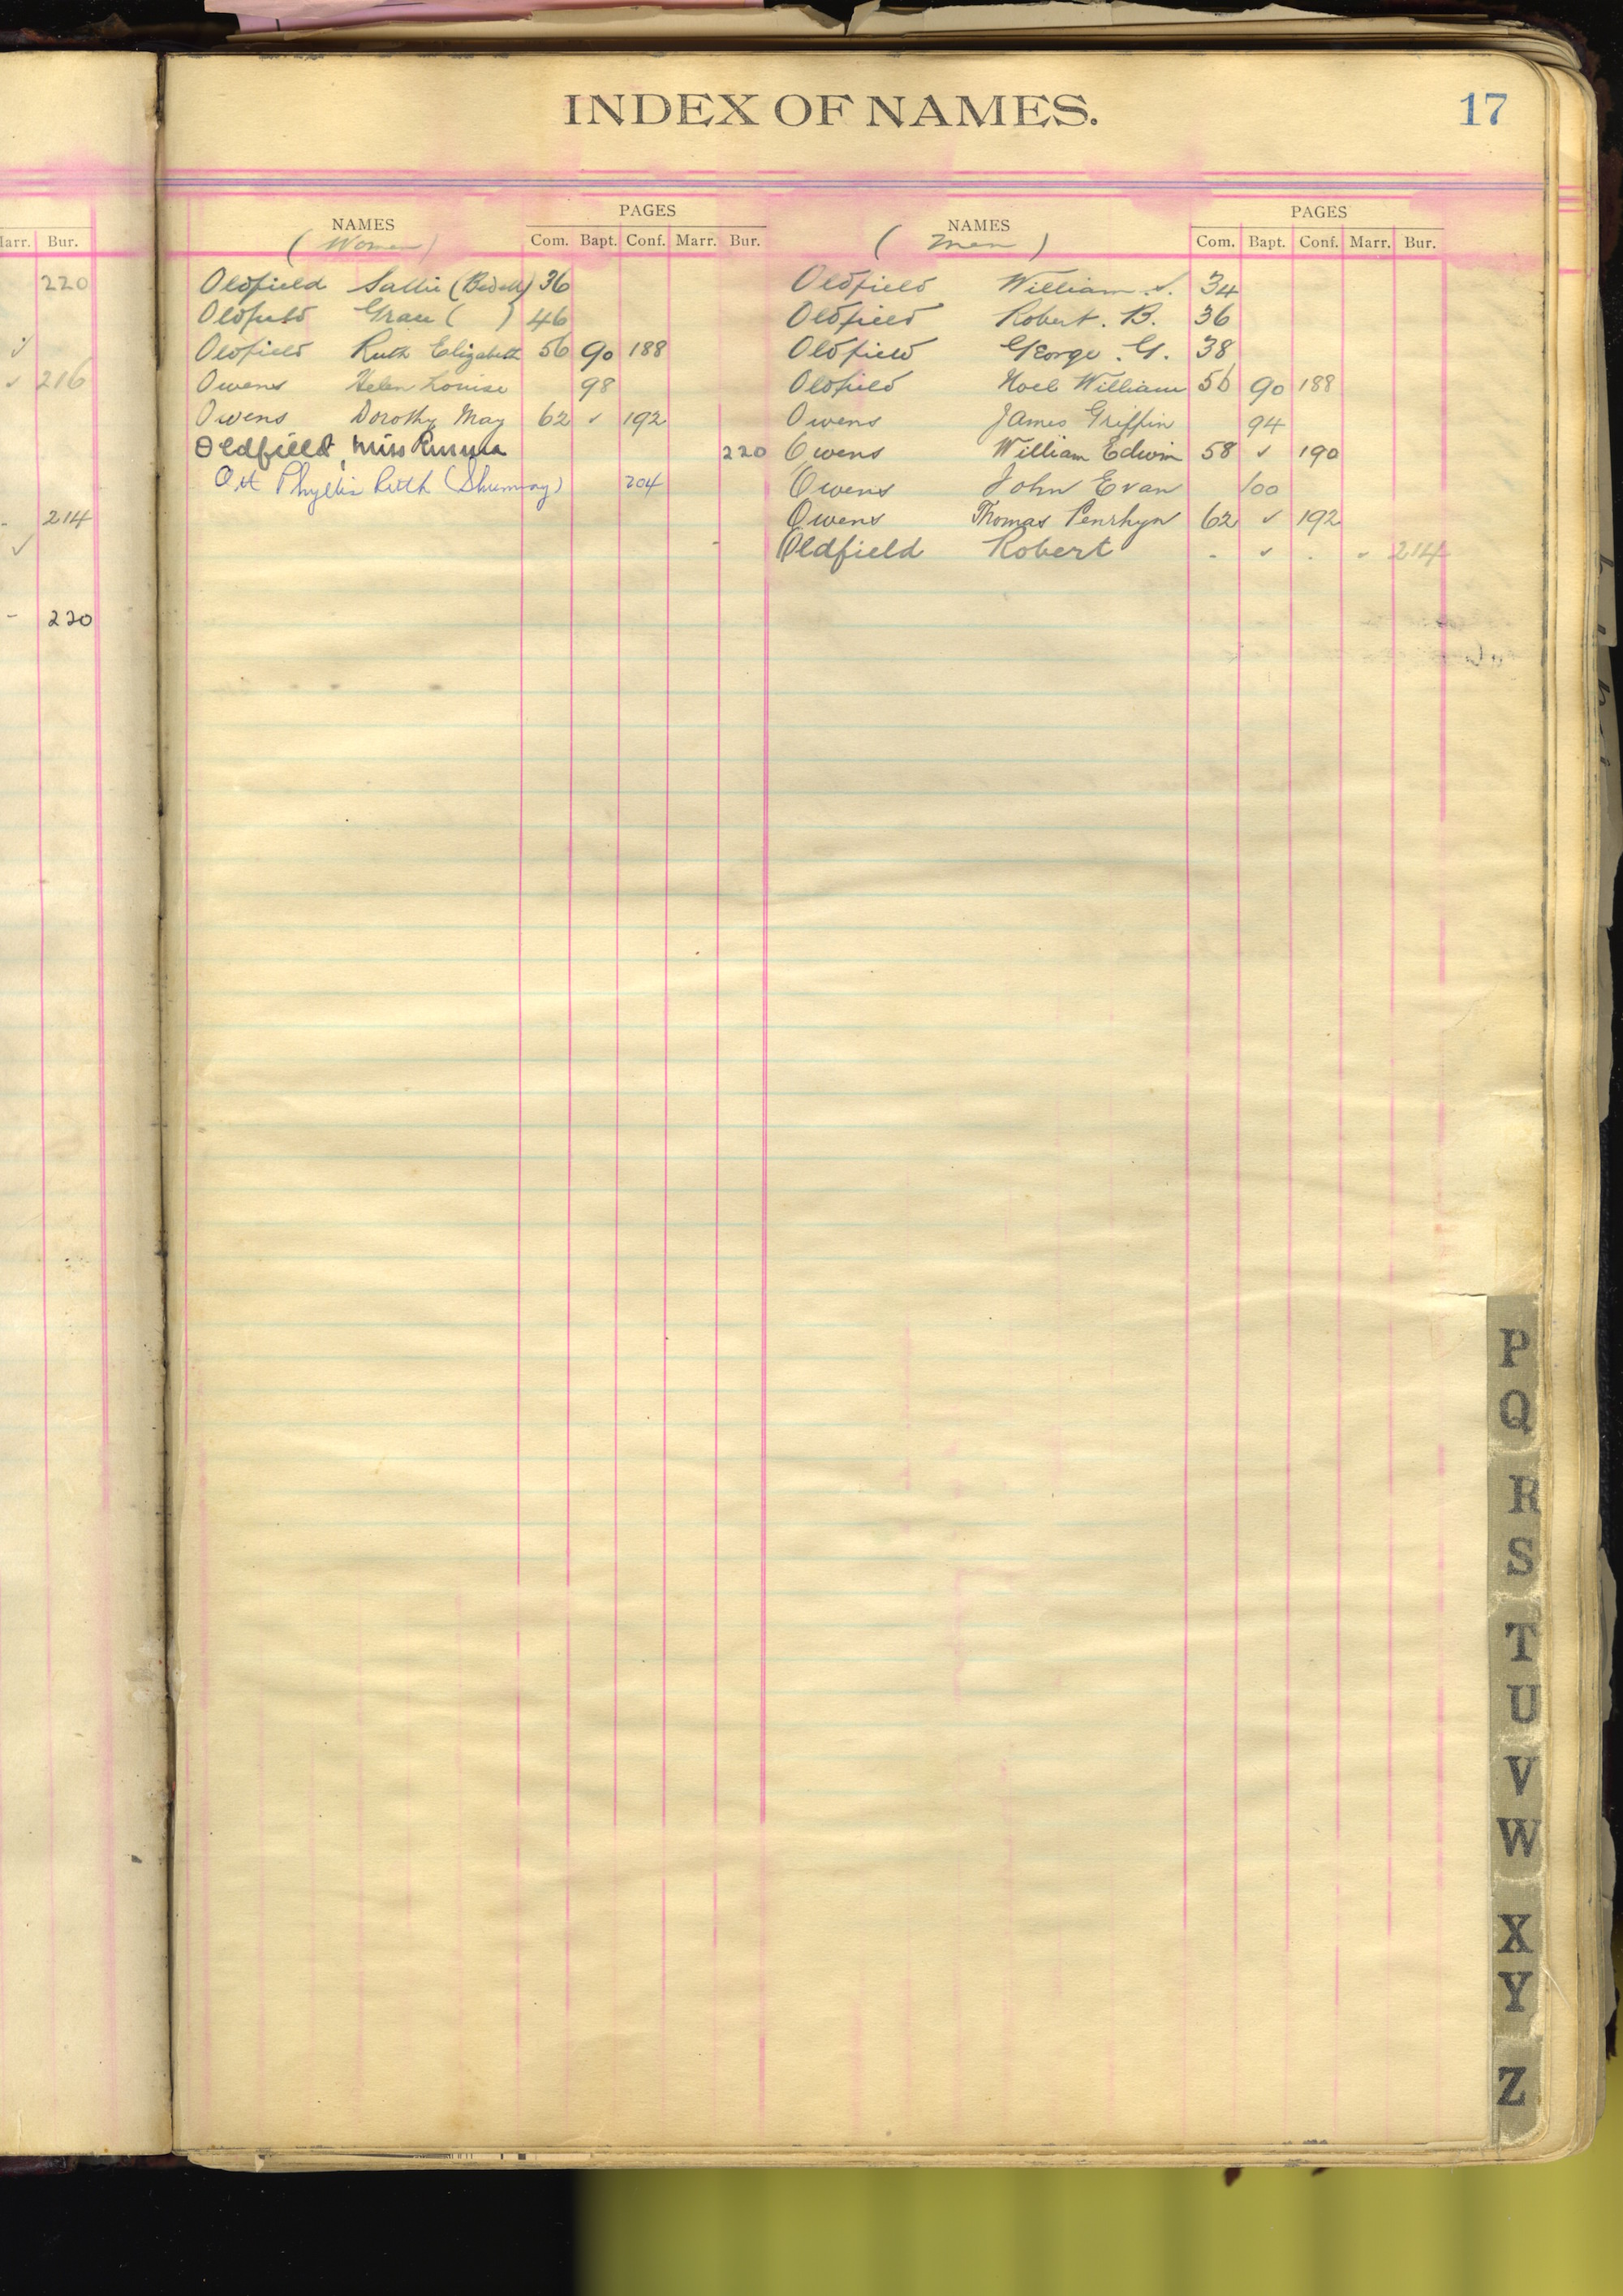 INDEX OF NAMES.
17
NAMES
PAGES
NAMES
PAGES
(Women)
Com. Bapt. Conf. Marr. Bur.
(Men)
Com. Bapt. Conf. Marr. Bur.
Marr. Bur.
220
✓ 216
214
✓
- 220
Oldfield Sallie (Bedell) 36
Oldfield Grace ( ) 46
Oldfield Ruth Elizabeth 56 90 188
Owens Helen Louise 98
Owens Dorothy May 62 ✓ 192
Oldfield, Miss 220
Ott Phyllis Ruth (Shumway) 204
Oldfield William S. 34
Oldfield Robert. B. 36
Oldfield George. G. 38
Oldfield Noel William 56 90 188
Owens James Griffin 94
Owens William Edwin 58 ✓ 190
Owens John Evan 100
Owens Thomas Penrhyn 62 ✓ 192
Oldfield Robert - ✓ . ✓ 214
P
Q
R
S
T
U
V
W
X
Y
Z